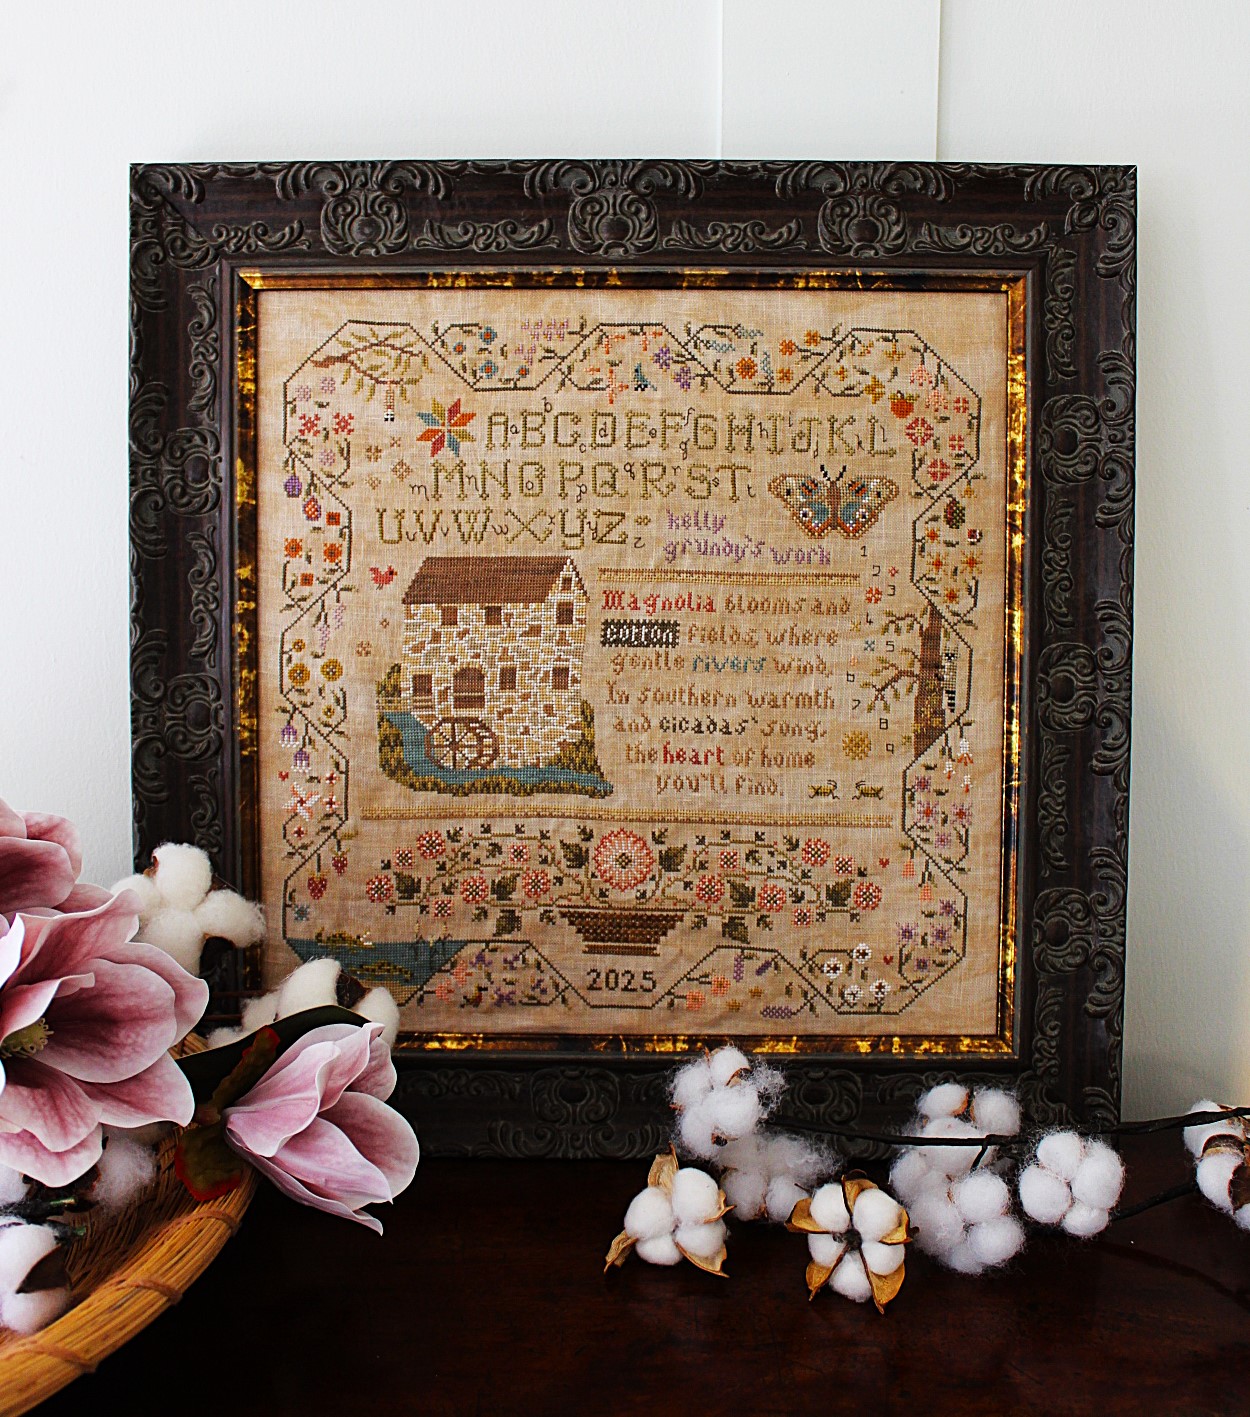 ABCDEFGHIJKL
MNOPQRST
UVWXYZ
kelly
grundy's work
Magnolia blooms and
cotton fields, where
gentle rivers wind.
In southern warmth
and cicadas' song,
the heart of home
you'll find.
1
2
3
4
5
6
7
8
9
2025